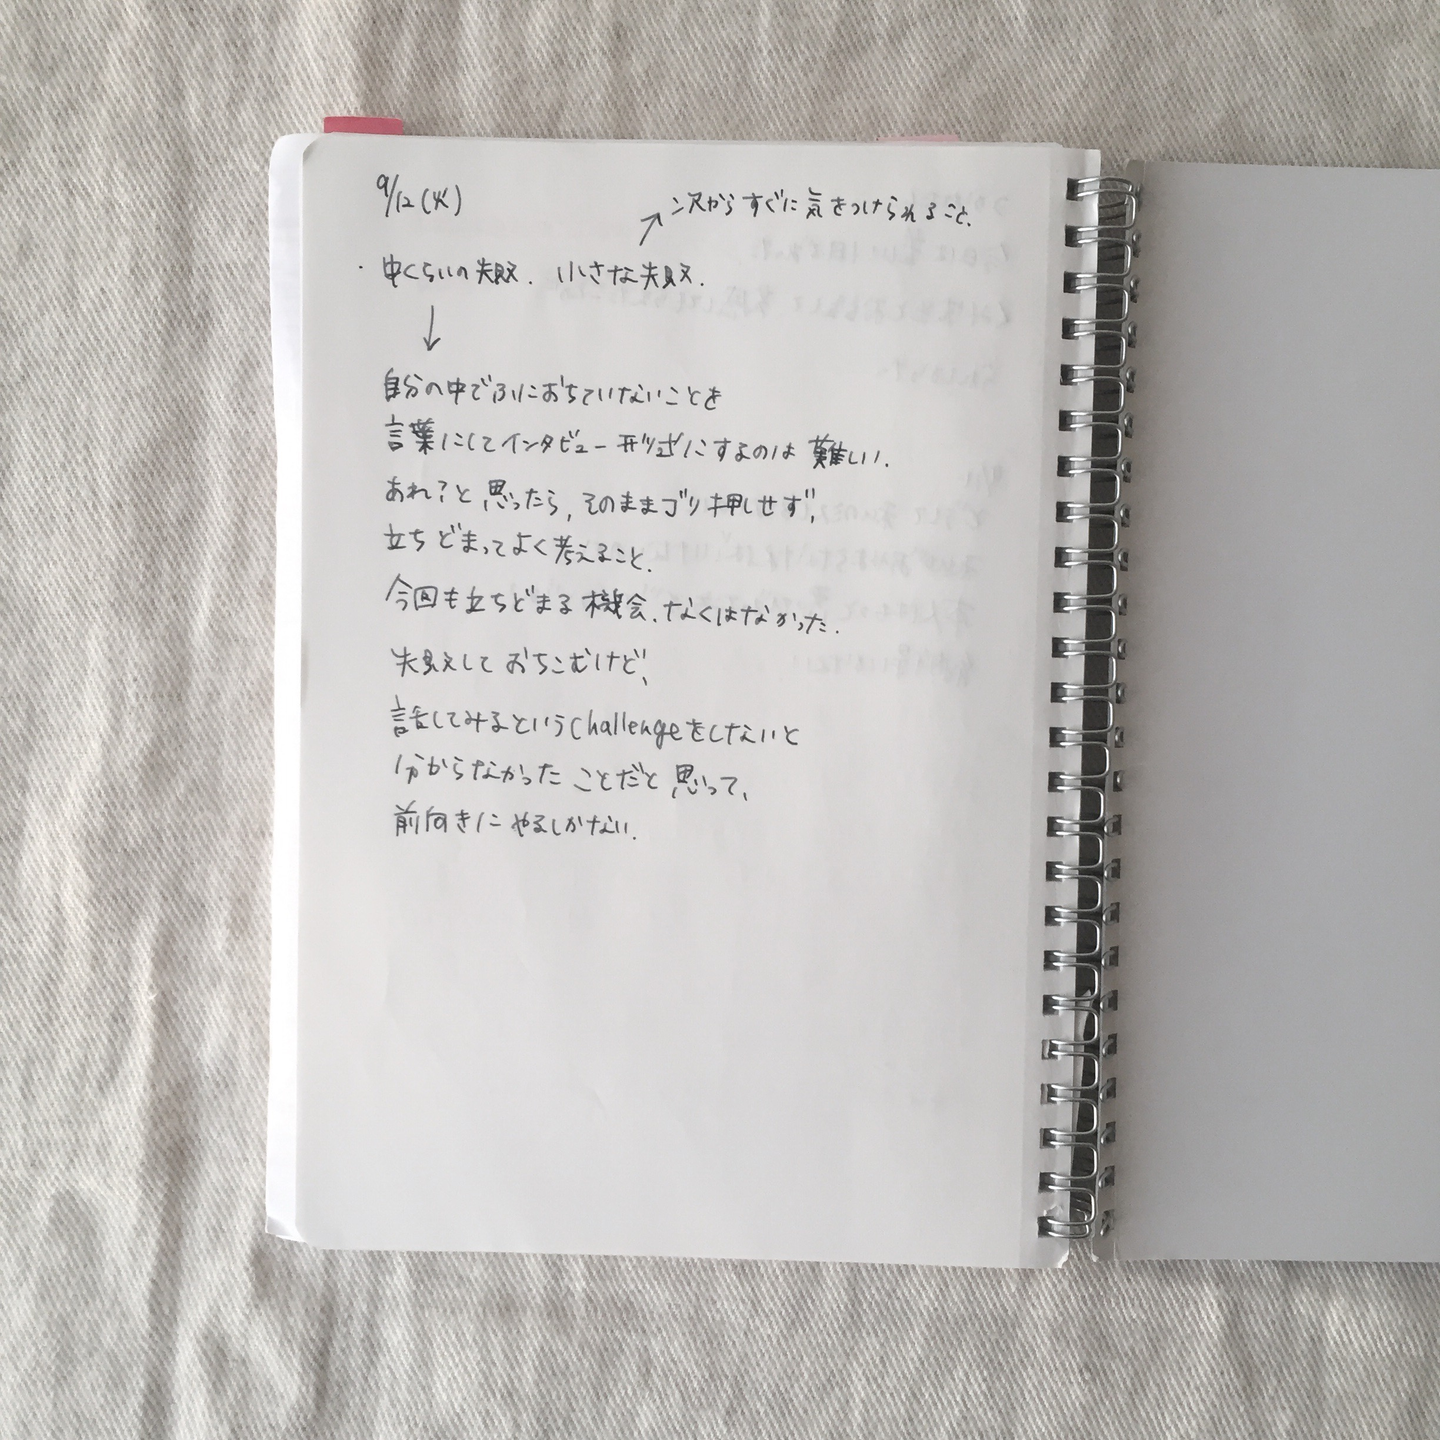 9/12(火)
次からすぐに気をつけられること.
・中くらいの失敗. 小さな失敗.
自分の中でふにおちていないことを
言葉にしてインタビュー形式にするのは難しい.
あれ?と思ったら, そのままゴリ押しせず,
立ちどまってよく考えること.
今回も立ちどまる機会. なくはなかった.
失敗して おちこむけど、
話してみるというchallengeをしないと
分からなかった ことだと思って、
前向きに やるしかない.